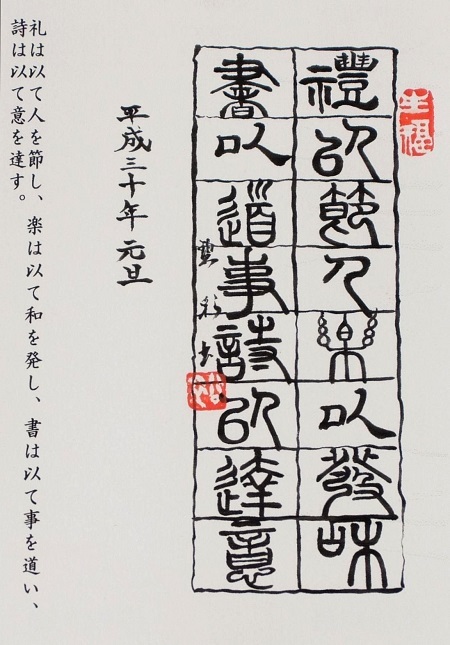 禮以節人樂以發咊
書以道事詩以達意
平成三十年 元旦
礼は以て人を節し、楽は以て和を発し、書は以て事を道い、
詩は以て意を達す。